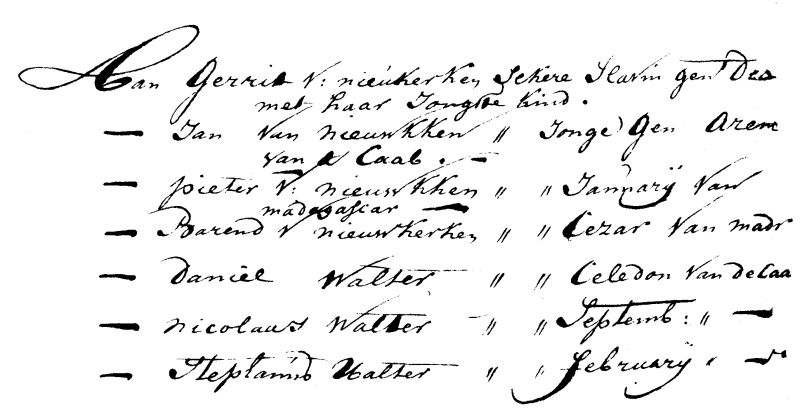 Aan Gerrit V: nieukerken Sekere Slavin gen Dea
met haar Jongste kind.
— Jan Van nieuwkken " Jonge Gen Arem
van d Caab. —
— pieter V: nieuwkken " " Jannarij Van
madagascar —
— Barend V nieuwkerken " " Cezar Van madr
— Daniel Walter " " Celedon Van de Caa
— nicolaus Walter " " Septemb: " —
— Stephanus Walter " " februarij " —